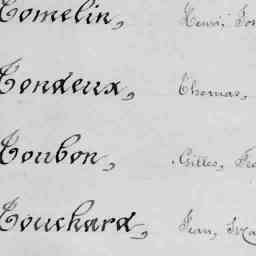 Tomelin, Henri,
Tondeux, Thomas,
Toubon, Gilles,
Touchard, Jean,